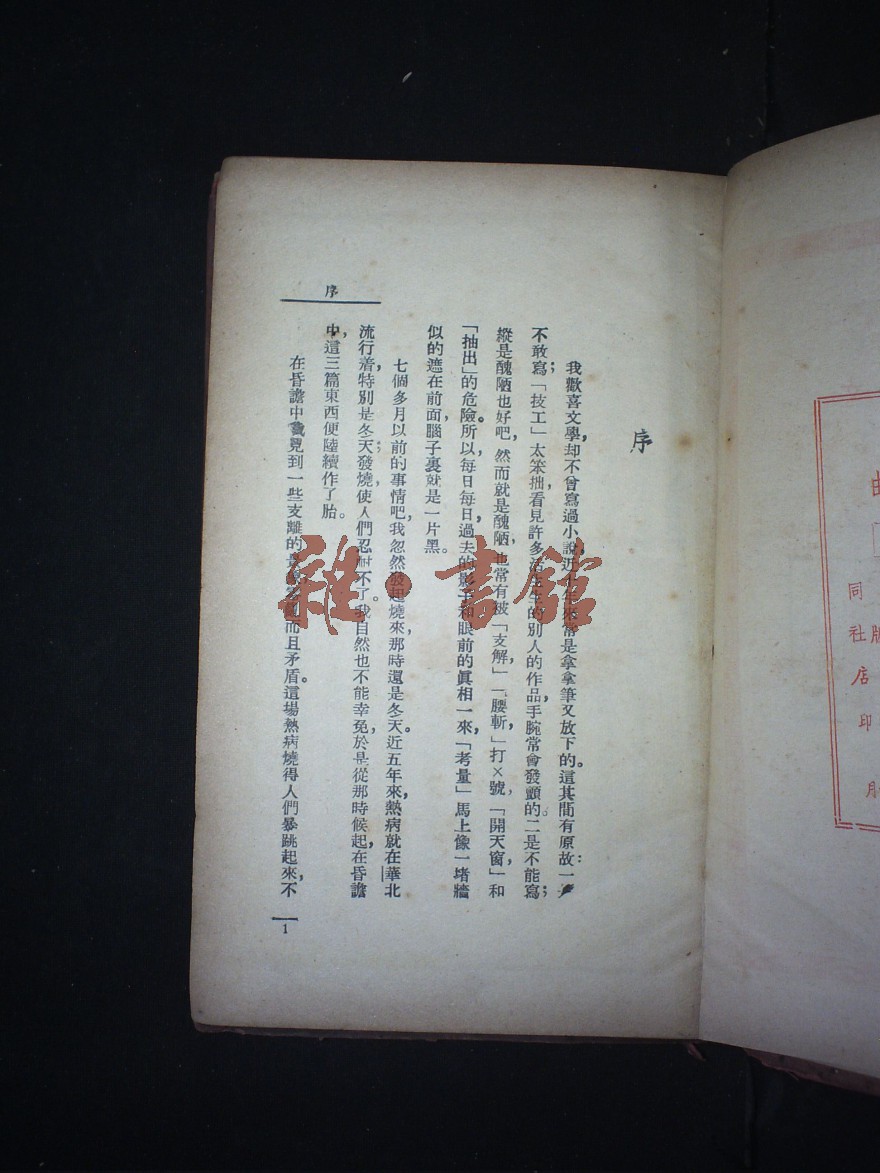 序
我歡喜文學，却不曾寫過小說，近十年來常是拿拿筆又放下的。這其間有原故：一
不敢寫；「技工」太笨拙，看見許多活生生的別人的作品，手腕常會發顫的。二是不能寫；
縱是醜陋也好吧，然而就是醜陋，也常有被「支解」，「腰斬」，打×號，「開天窗」和
「抽出」的危險。所以每日每日過去的影子和眼前的眞相一來，「考量」馬上像一堵牆
似的遮在前面，腦子裏就是一片黑。
七個多月以前的事情吧，我忽然發起燒來，那時還是冬天。近五年來，熱病就在華北
流行着，特別是冬天發燒，使人們忍耐不了。我自然也不能幸免，於是從那時候起，在昏譫
中，這三篇東西便陸續作了胎。
在昏譫中我見到一些支離的而且矛盾。這場熱病燒得人們暴跳起來，不
序
1
雜·書館
同
社
店
印